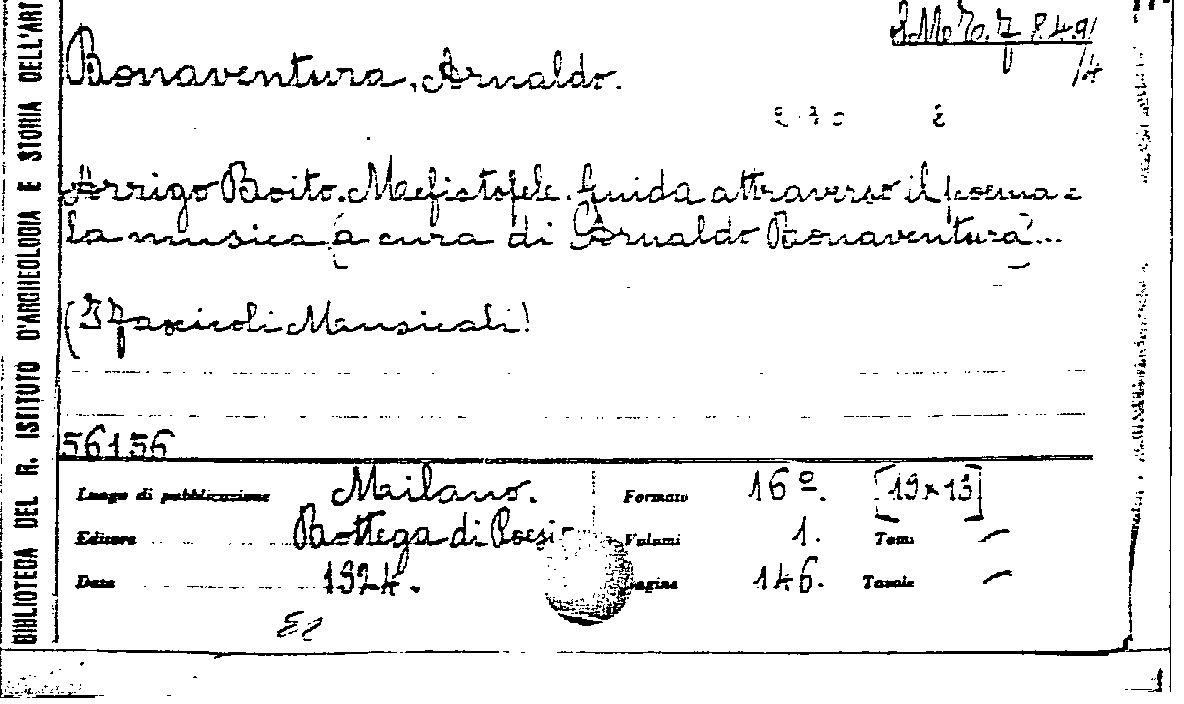 BIBLIOTECA DEL R. ISTITUTO D'ARCHEOLOGIA E STORIA DELL'ART
Bonaventura, Arnaldo.
Arrigo Boito. Mefistofele. Guida attraverso il poema e
la musica a cura di Arnaldo Bonaventura...
(I fascicoli Musicali)
56156
Luogo di pubblicazione Milano. Formato 16º. [19×13]
Editore Bottega di Poesia Volumi 1. Tomi —
Data 1924. Pagine 146. Tavole —